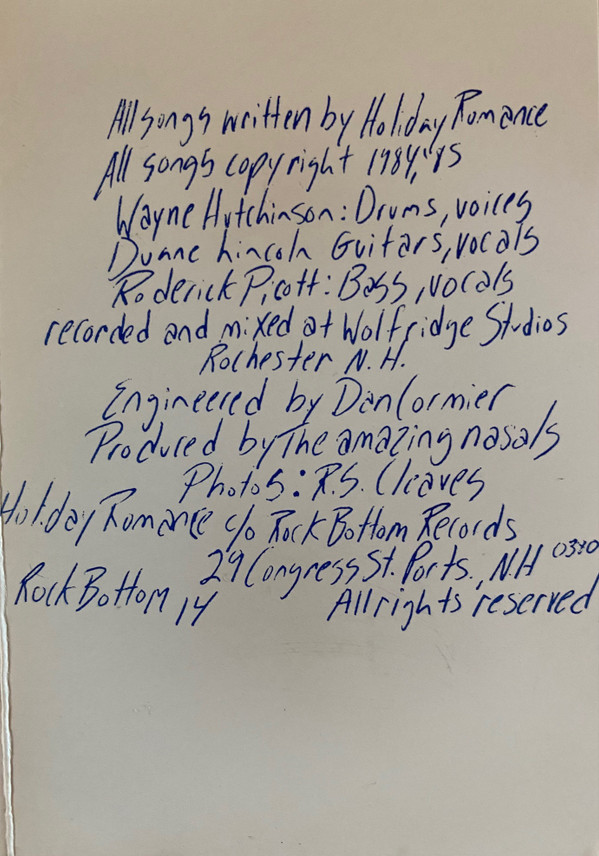 All songs written by Holiday Romance
All songs copyright 1984, '85
Wayne Hutchinson: Drums, voices
Duane Lincoln Guitars, vocals
Roderick Picott: Bass, vocals
recorded and mixed at Wolfridge Studios
Rochester N.H.
Engineered by Dan Cormier
Produced by The amazing nasals
Photos: R.S. Cleaves
Holiday Romance c/o Rock Bottom Records
29 Congress St. Ports., N.H
Rock Bottom 14 All rights reserved